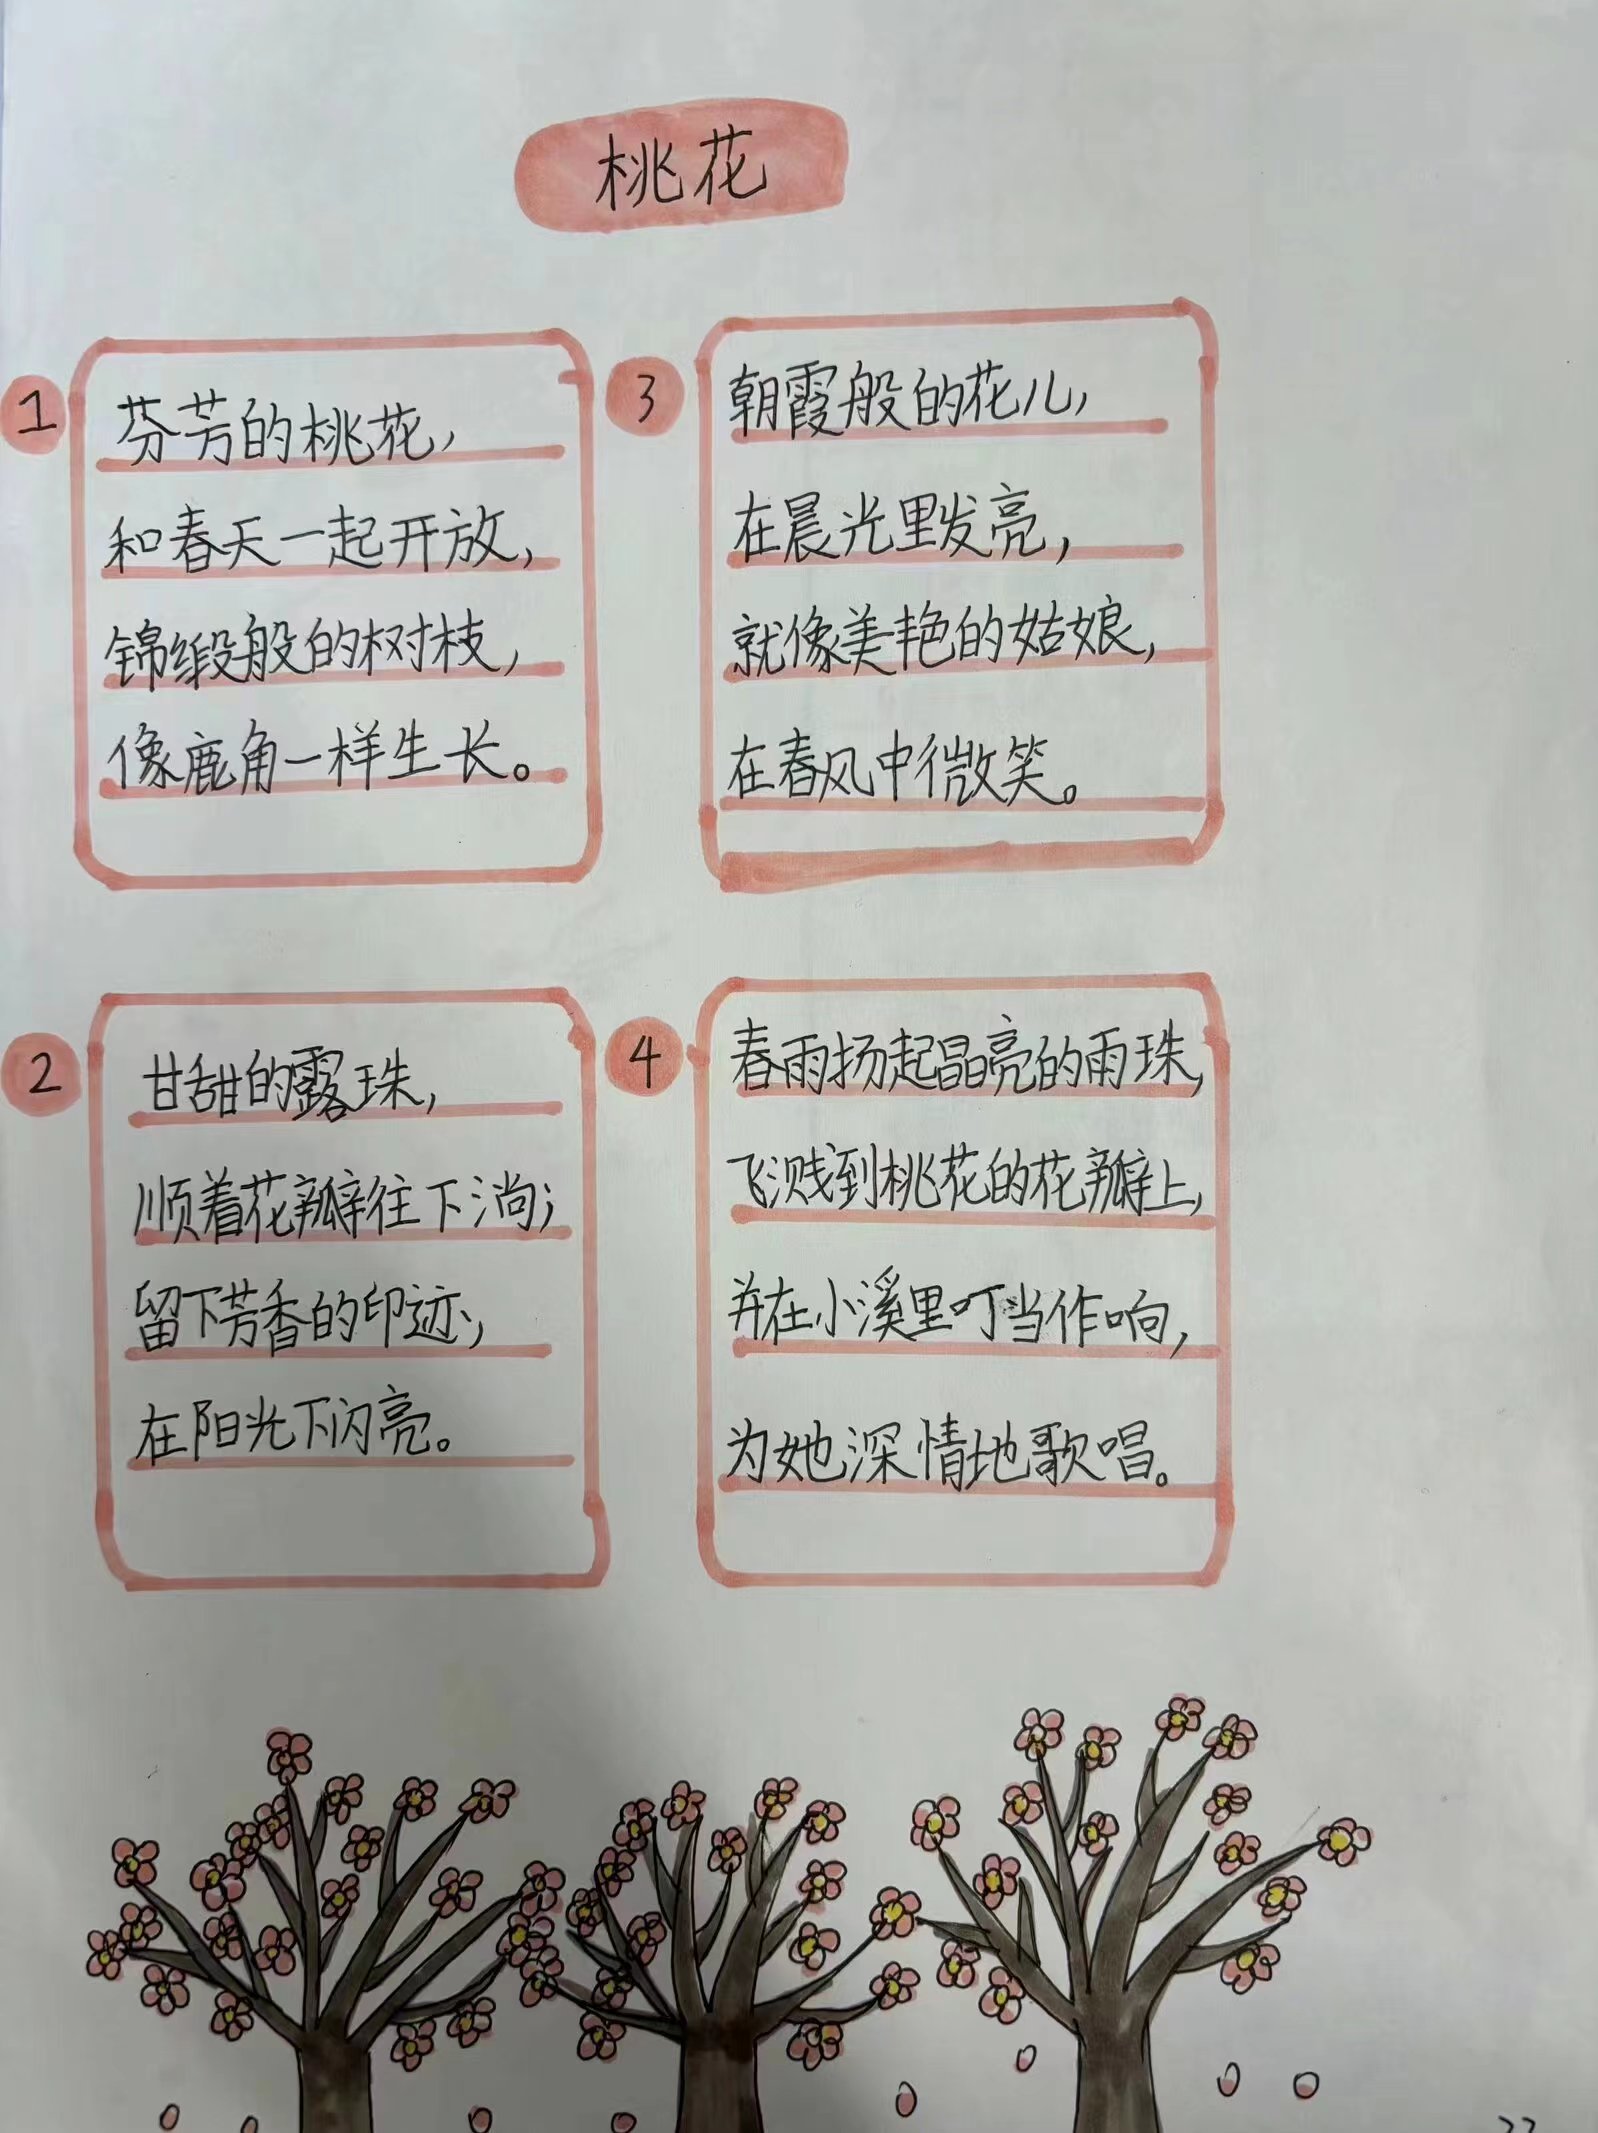 桃花
1
芬芳的桃花，
和春天一起开放，
锦缎般的树枝，
像鹿角一样生长。
2
甘甜的露珠，
顺着花瓣往下淌；
留下芳香的印迹，
在阳光下闪亮。
3
朝霞般的花儿，
在晨光里发亮，
就像美艳的姑娘，
在春风中微笑。
4
春雨扬起晶亮的雨珠，
飞溅到桃花的花瓣上，
并在小溪里叮当作响，
为她深情地歌唱。